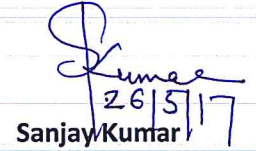 SKumar
26/5/17
Sanjay Kumar